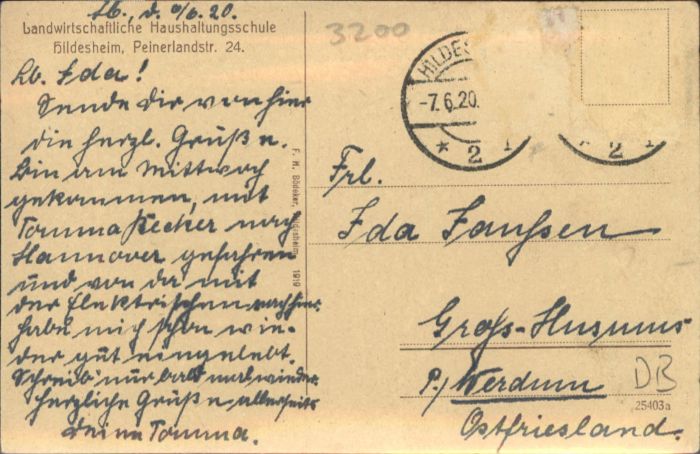 Hb., d. 6/6.20.
Landwirtschaftliche Haushaltungsschule
Hildesheim, Peinerlandstr. 24.
Lb. Ida!
Sende dir von hier
die herzl. Grüße.
Bin am Mittwoch
gekommen, mit
Tomma Becker nach
Hannover gefahren
und von da mit
der Elektrischen nach hier.
Habe mich schon wie-
der gut eingelebt.
Schreib' nur bald mal wieder.
Herzliche Grüße allerseits
deine Tomma.
F. H. Bödeker, Hildesheim 1919
3200
HILDES
-7.6.20.
* 2
* 2
Frl.
Ida Janssen
Gross-Husums
P./Werdum
Ostfriesland.
DB
25403a